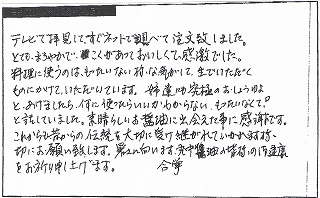 テレビで拝見して、すぐネットで調べて注文致しました。
とても、まろやかで、コクがあっておいしくて、感激でした。
料理に使うのは、もったいない様な気がして、生でいただく
ものにかけて、いただいています。姉達にも究極のおしょうゆよ
と、あげましたら、何に使ったらいいかわからない、もったいなくて。
と話していました。素晴らしいお醤油に出会えた事に感謝です。
これからも昔からの伝統を大切に受け継がれていかれます様、
切にお願い致します。寒さに向います。
をお祈り申し上げます。 合掌